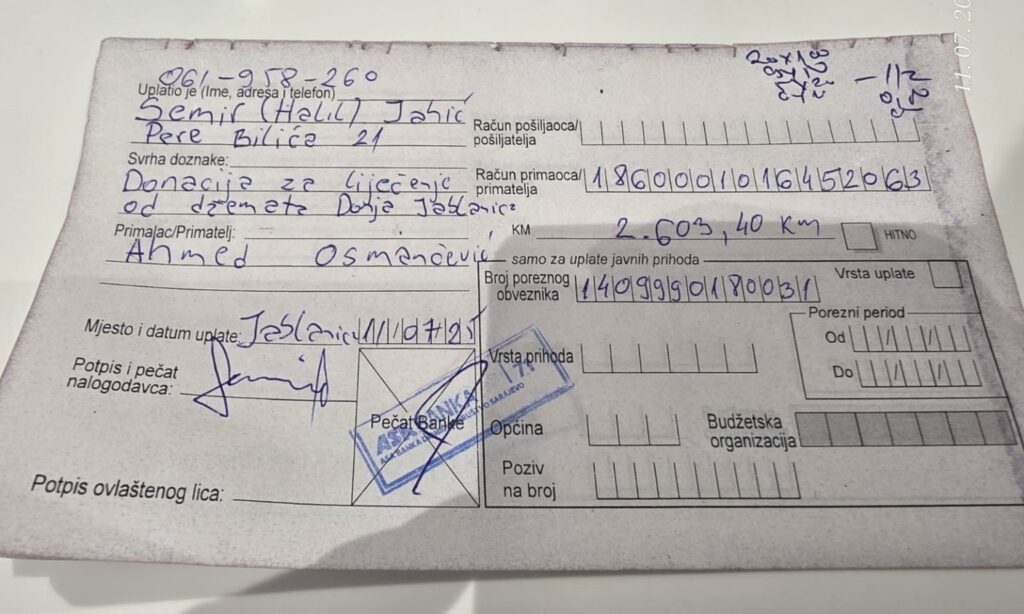 061-958-260
Uplatio je (Ime, adresa i telefon)
Semir (Halil) Jahić
Pere Bilića 21
Svrha doznake:
Donacija za liječenje
od džemata Donja Jablanica
Primalac/Primatelj:
Ahmed Osmančević
Mjesto i datum uplate: Jablanica 110725
Potpis i pečat
nalogodavca:
Pečat Banke
ASA BANKA
71
Potpis ovlaštenog lica:
20x13
-112
Račun pošiljaoca/
pošiljatelja
Račun primaoca/
primatelja
1860001016452063
KM 2.603,40 KM
HITNO
samo za uplate javnih prihoda
Broj poreznog
obveznika
1409990180031
Vrsta uplate
Porezni period
Od
Do
Vrsta prihoda
Općina
Budžetska
organizacija
Poziv
na broj
11.07.20